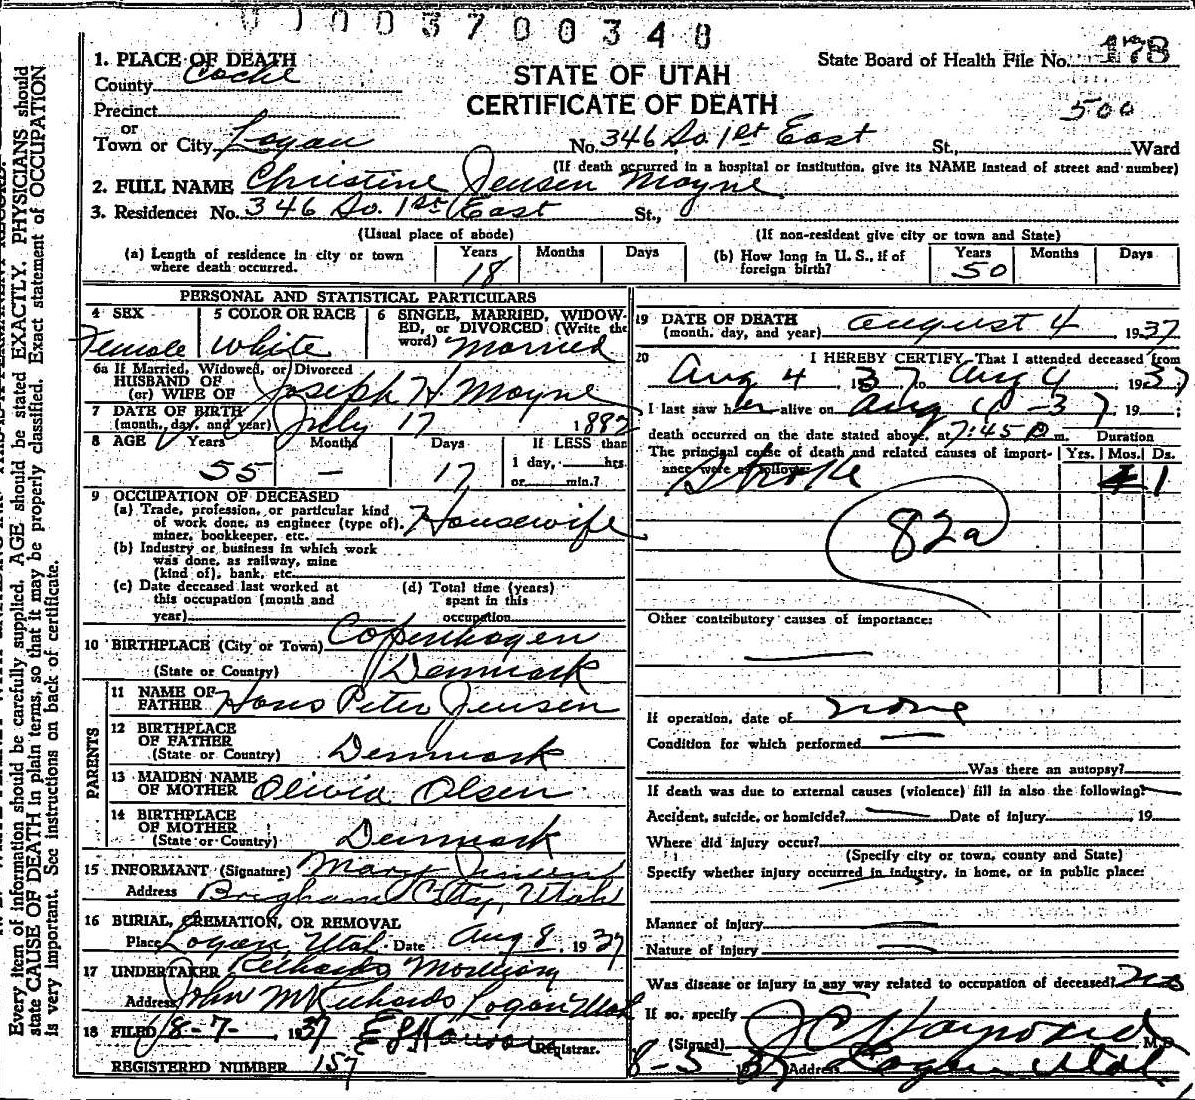 0 1 0 0 3 7 0 0 3 4 8
1. PLACE OF DEATH
County Cache
Precinct
or
Town or City Logan No. 346 So. 1st East St., Ward
STATE OF UTAH
CERTIFICATE OF DEATH
State Board of Health File No. 178
500
(If death occurred in a hospital or institution, give its NAME instead of street and number)
2. FULL NAME Christine Jensen Mayne
3. Residence: No. 346 So. 1st East St.,
(Usual place of abode) (If non-resident give city or town and State)
(a) Length of residence in city or town where death occurred. Years 18 Months Days
(b) How long in U. S., if of foreign birth? Years 50 Months Days
PERSONAL AND STATISTICAL PARTICULARS
4 SEX Female
5 COLOR OR RACE White
6 SINGLE, MARRIED, WIDOWED, or DIVORCED (Write the word) Married
6a If Married, Widowed, or Divorced
HUSBAND OF
(or) WIFE OF Joseph H. Mayne
7 DATE OF BIRTH
(month, day, and year) July 17 1882
8 AGE Years 55 Months — Days 17 If LESS than
1 day, hrs.
or min.?
9 OCCUPATION OF DECEASED
(a) Trade, profession, or particular kind
of work done, as engineer (type of),
miner, bookkeeper, etc. Housewife
(b) Industry or business in which work
was done, as railway, mine
(kind of), bank, etc.
(c) Date deceased last worked at
this occupation (month and
year)
(d) Total time (years)
spent in this
occupation
10 BIRTHPLACE (City or Town) Copenhagen
(State or Country) Denmark
PARENTS
11 NAME OF
FATHER Hans Peter Jensen
12 BIRTHPLACE
OF FATHER
(State or Country) Denmark
13 MAIDEN NAME
OF MOTHER Olivia Olsen
14 BIRTHPLACE
OF MOTHER
(State or Country) Denmark
15 INFORMANT (Signature) Mary Jensen
Address Brigham City, Utah
16 BURIAL, CREMATION, OR REMOVAL
Place Logan, Utah Date Aug 8 1937
17 UNDERTAKER Richards Mortuary
Address John M Richards Logan Utah
18 FILED 8-7-, 1937
Registrar.
REGISTERED NUMBER 157
19 DATE OF DEATH
(month, day, and year) August 4 1937
20 I HEREBY CERTIFY, That I attended deceased from
Aug 4, 1937 to Aug 4, 1937;
I last saw her alive on Aug 4-37, 19 ;
death occurred on the date stated above, at 7:45 P m. Duration
The principal cause of death and related causes of importance were as follows: Yrs. Mos. Ds.
Stroke 1
82a
Other contributory causes of importance:
If operation, date of none
Condition for which performed
Was there an autopsy?
If death was due to external causes (violence) fill in also the following:
Accident, suicide, or homicide? Date of injury 19
Where did injury occur?
(Specify city or town, county and State)
Specify whether injury occurred in industry, in home, or in public place:
Manner of injury
Nature of injury
Was disease or injury in any way related to occupation of deceased? No
If so, specify
(Signed) J C Hayward M.D.
8-5 1937 Address Logan Utah
Every item of information should be carefully supplied. AGE should be stated EXACTLY. PHYSICIANS should
state CAUSE OF DEATH in plain terms, so that it may be properly classified. Exact statement of OCCUPATION
is very important. See instructions on back of certificate.